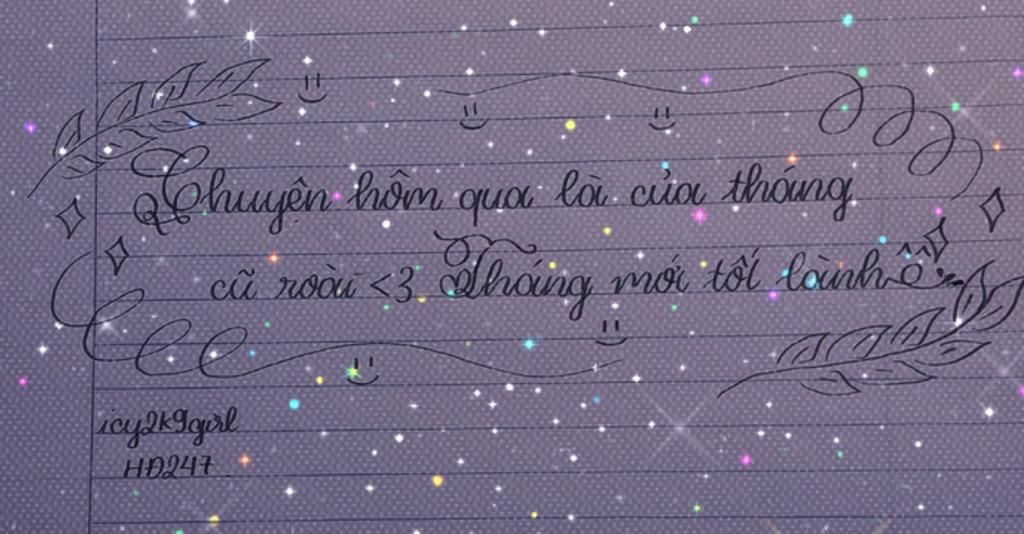 Chuyện hôm qua là của tháng
cũ roài <3 Tháng mới tốt lành ^^
icy2k9girl
HD247